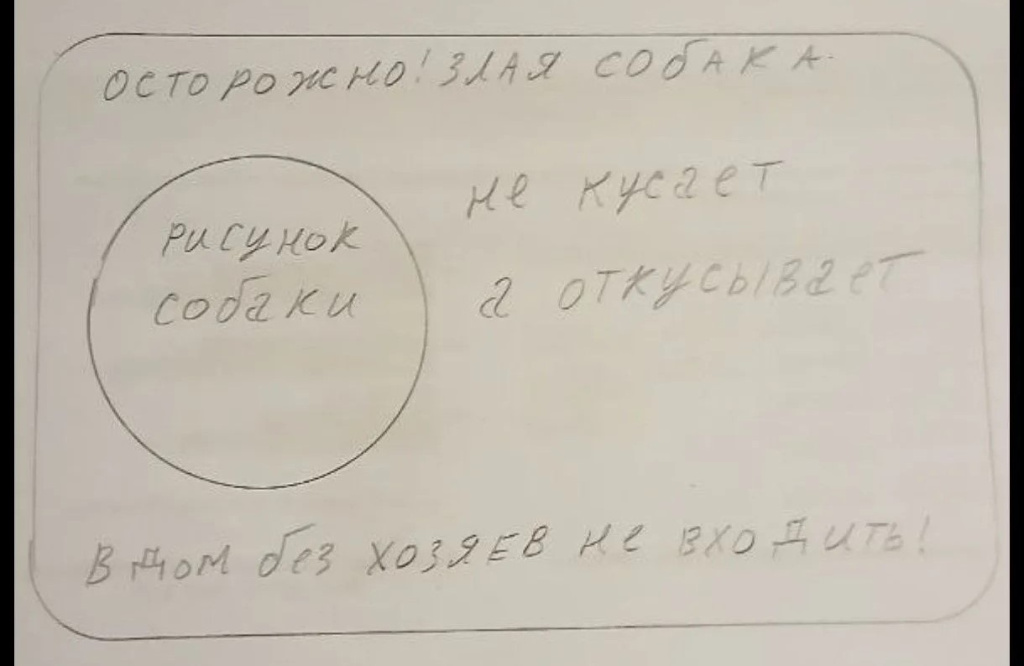 ОСТОРОЖНО! ЗЛАЯ СОБАКА.
не кусает
рисунок
собаки
а откусывает
В дом без хозяЕВ не входить!